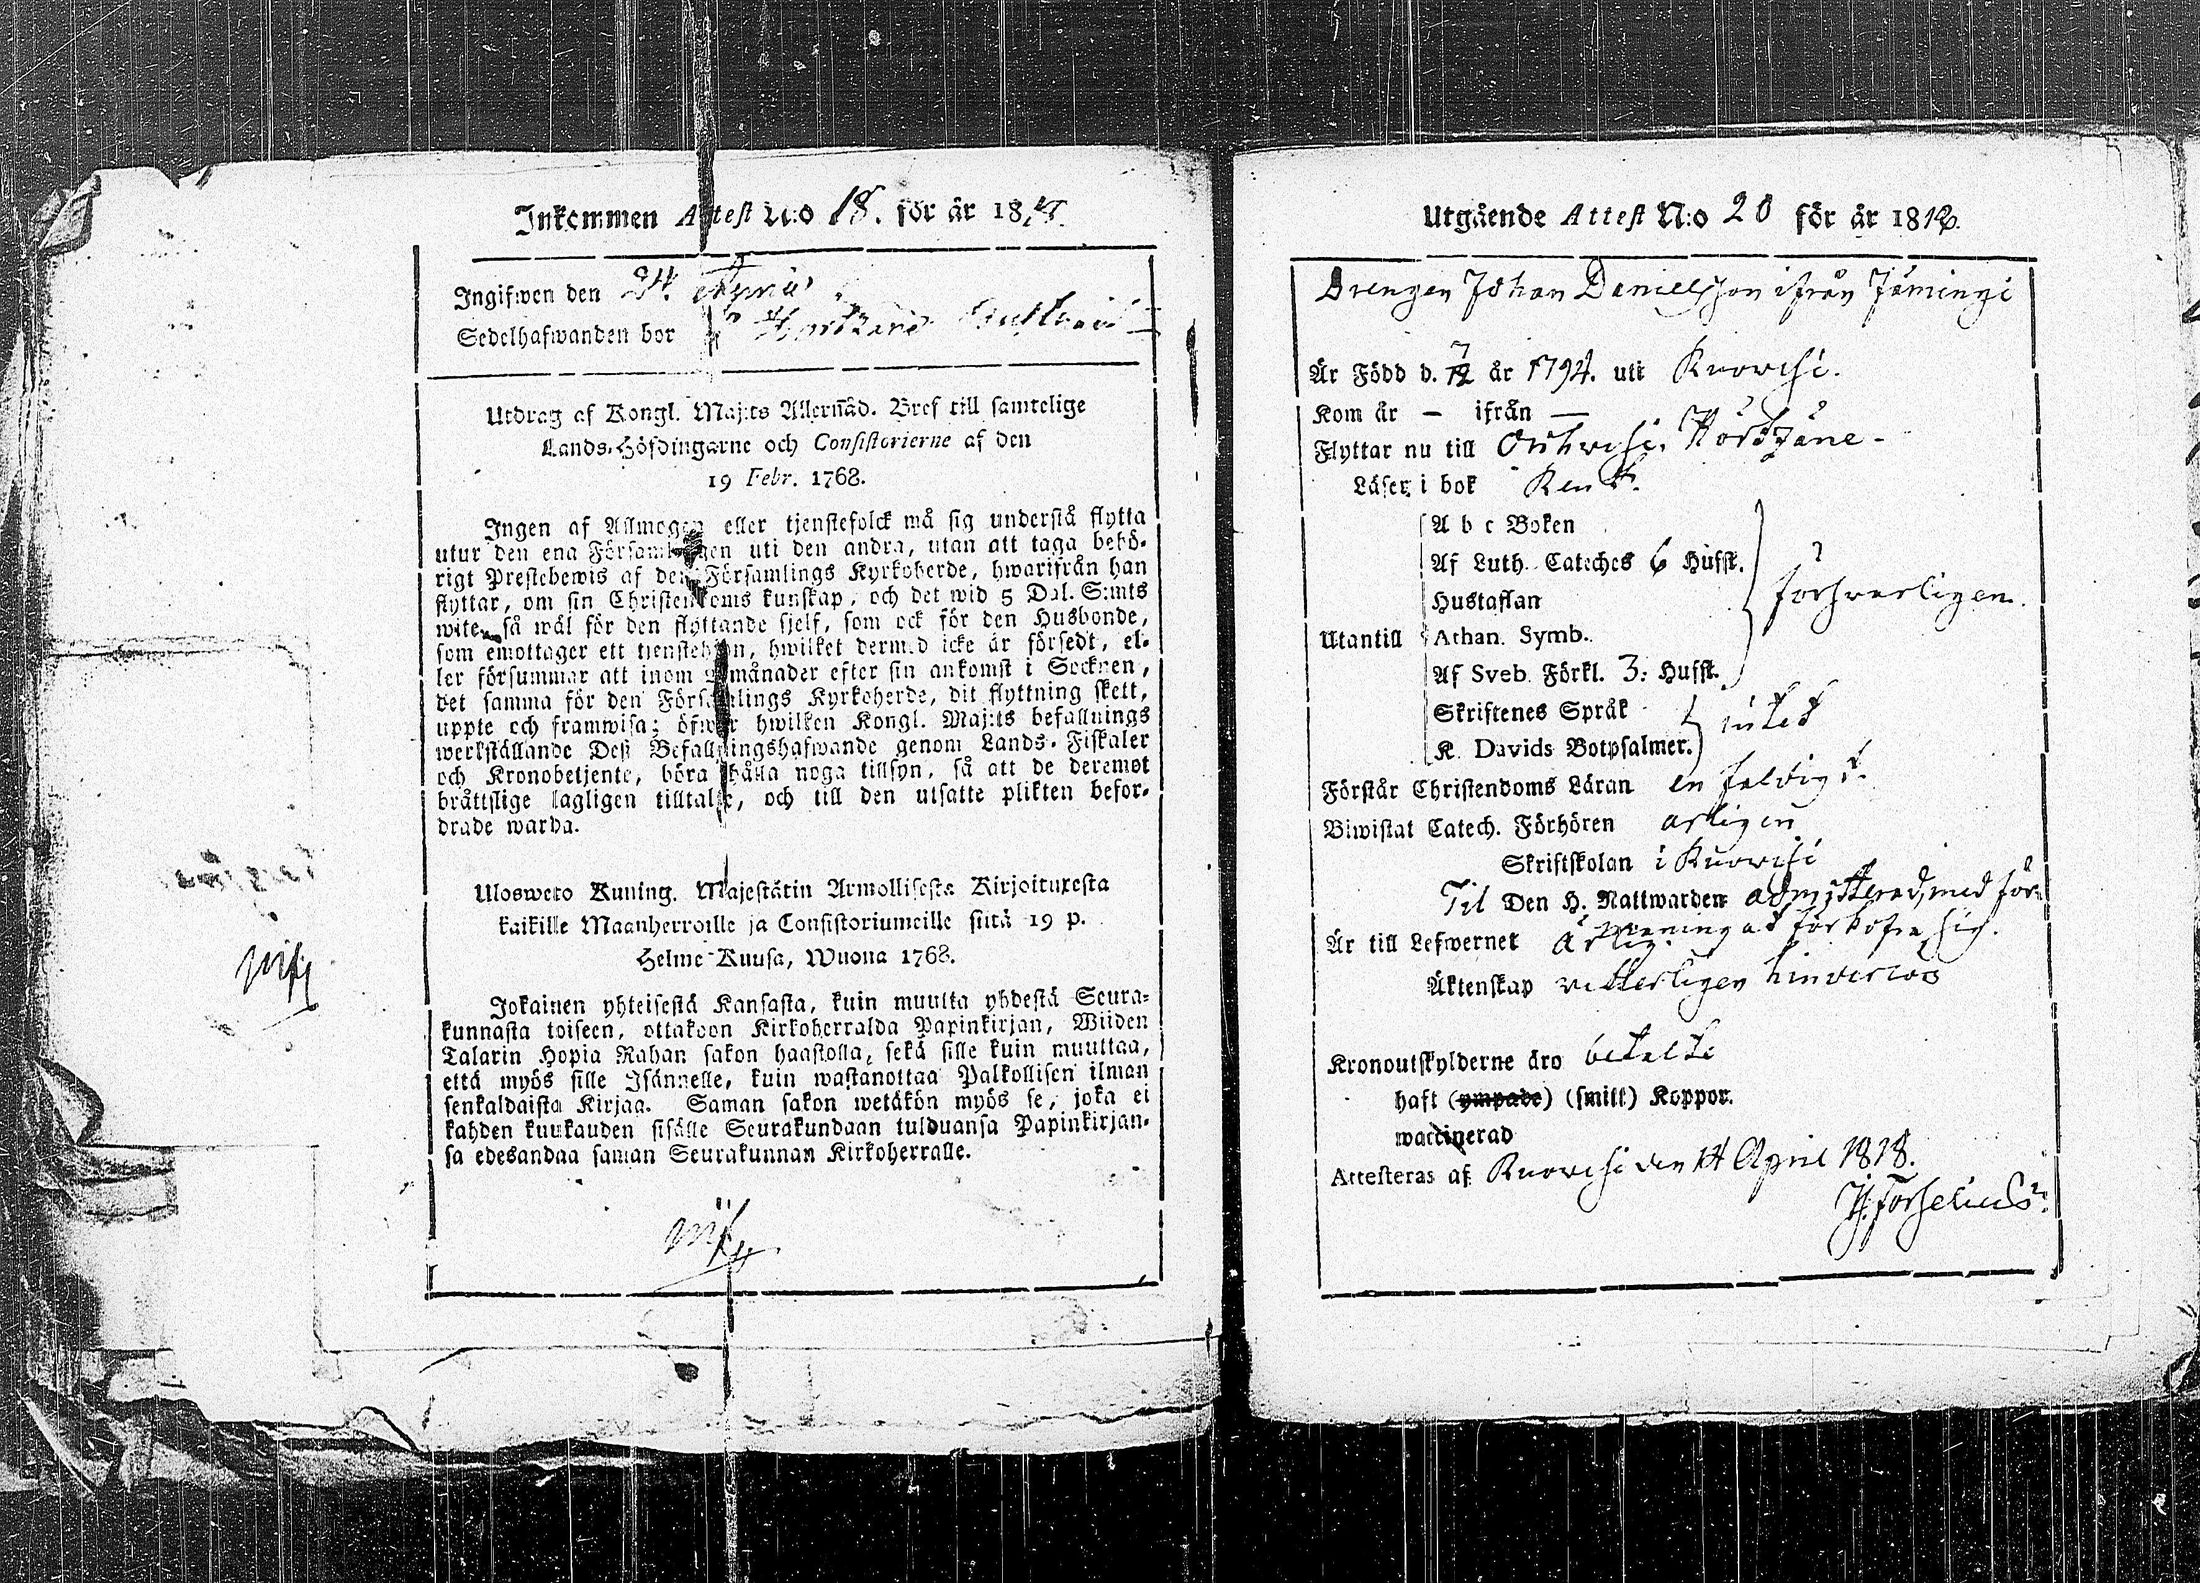 Inkommen Attest N:o 18. för år 1818.
Ingifwen den 24.
Sedelhafwanden bor
Utdrag af Kongl. Maj:ts Allernåd. Bref till samtelige
Lands-Höfdingarne och Consistorierne af den
19 Febr. 1768.
Ingen af Allmogen eller tjenstefolck må sig understå flytta
utur den ena Församlingen uti den andra, utan att taga behö-
rigt Prestebewis af den Församlings Kyrkoherde, hwarifrån han
flyttar, om sin Christendoms kunskap, och det wid 5 Dal. S:mts
wite, så wäl för den flyttande sjelf, som ock för den Husbonde,
som emottager ett tjenstehjon, hwilket dermed icke är försedt, el-
ler försummar att inom månader efter sin ankomst i Socknen,
det samma för den Församlings Kyrkoherde, dit flyttning skett,
uppte och framwisa; öfwer hwilken Kongl. Maj:ts befallnings
werkställande Deß Befallningshafwande genom Lands-Fiskaler
och Kronobetjente, böra hålla noga tillsyn, så att de deremot
bråttslige lagligen tilltalte, och till den utsatte plikten befor-
drade warda.
Ulosweto Kuning. Majestätin Armollisesta Kirjoituxesta
kaikille Maanherroille ja Consistoriumeille siitä 19 p.
Helme-Kuusa, Wuona 1768.
Jokainen yhteisestä Kansasta, kuin muutta yhdestä Seura-
kunnasta toiseen, ottakoon Kirkoherralda Papinkirjan, Wiiden
Talarin Hopia Rahan sakon haastolla, sekä sille kuin muuttaa,
että myös sille Isännelle, kuin wastanottaa Palkollisen ilman
senkaldaista Kirjaa. Saman sakon wetäkön myös se, joka ei
kahden kuukauden sisälle Seurakundaan tulduansa Papinkirjan-
sa edesandaa saman Seurakunnan Kirkoherralle.
Utgående Attest N:o 20 för år 1818.
Drengen Johan Danielsson ifrån Jäminge
Är Född d. 7/12 år 1794. uti Kuowesi.
Kom år – ifrån —
Flyttar nu till Orihwesi,
Läser i bok Rent.
A b c Boken
Af Luth. Cateches 6 Hufst.
Hustaflan
försvarligen.
Utantill
Athan. Symb.
Af Sveb. Förkl. 3: Hufst.
Skriftenes Språk
intet
K. Davids Botpsalmer.
Förstår Christendoms Läran enfaldigt.
Biwistat Catech. Förhören årligen
Skriftskolan i Kuowesi
Til Den H. Nattwarden admitterad, med för-
maning at förkofra sig.
Är till Lefwernet ärlig.
Äktenskap vetterligen hinderlös
Kronoutskylderne äro betalte
haft (ympade) (smitt) Koppor.
waccinerad
Attesteras af Kuowesi den 14 April 1818.
H. Forselius.